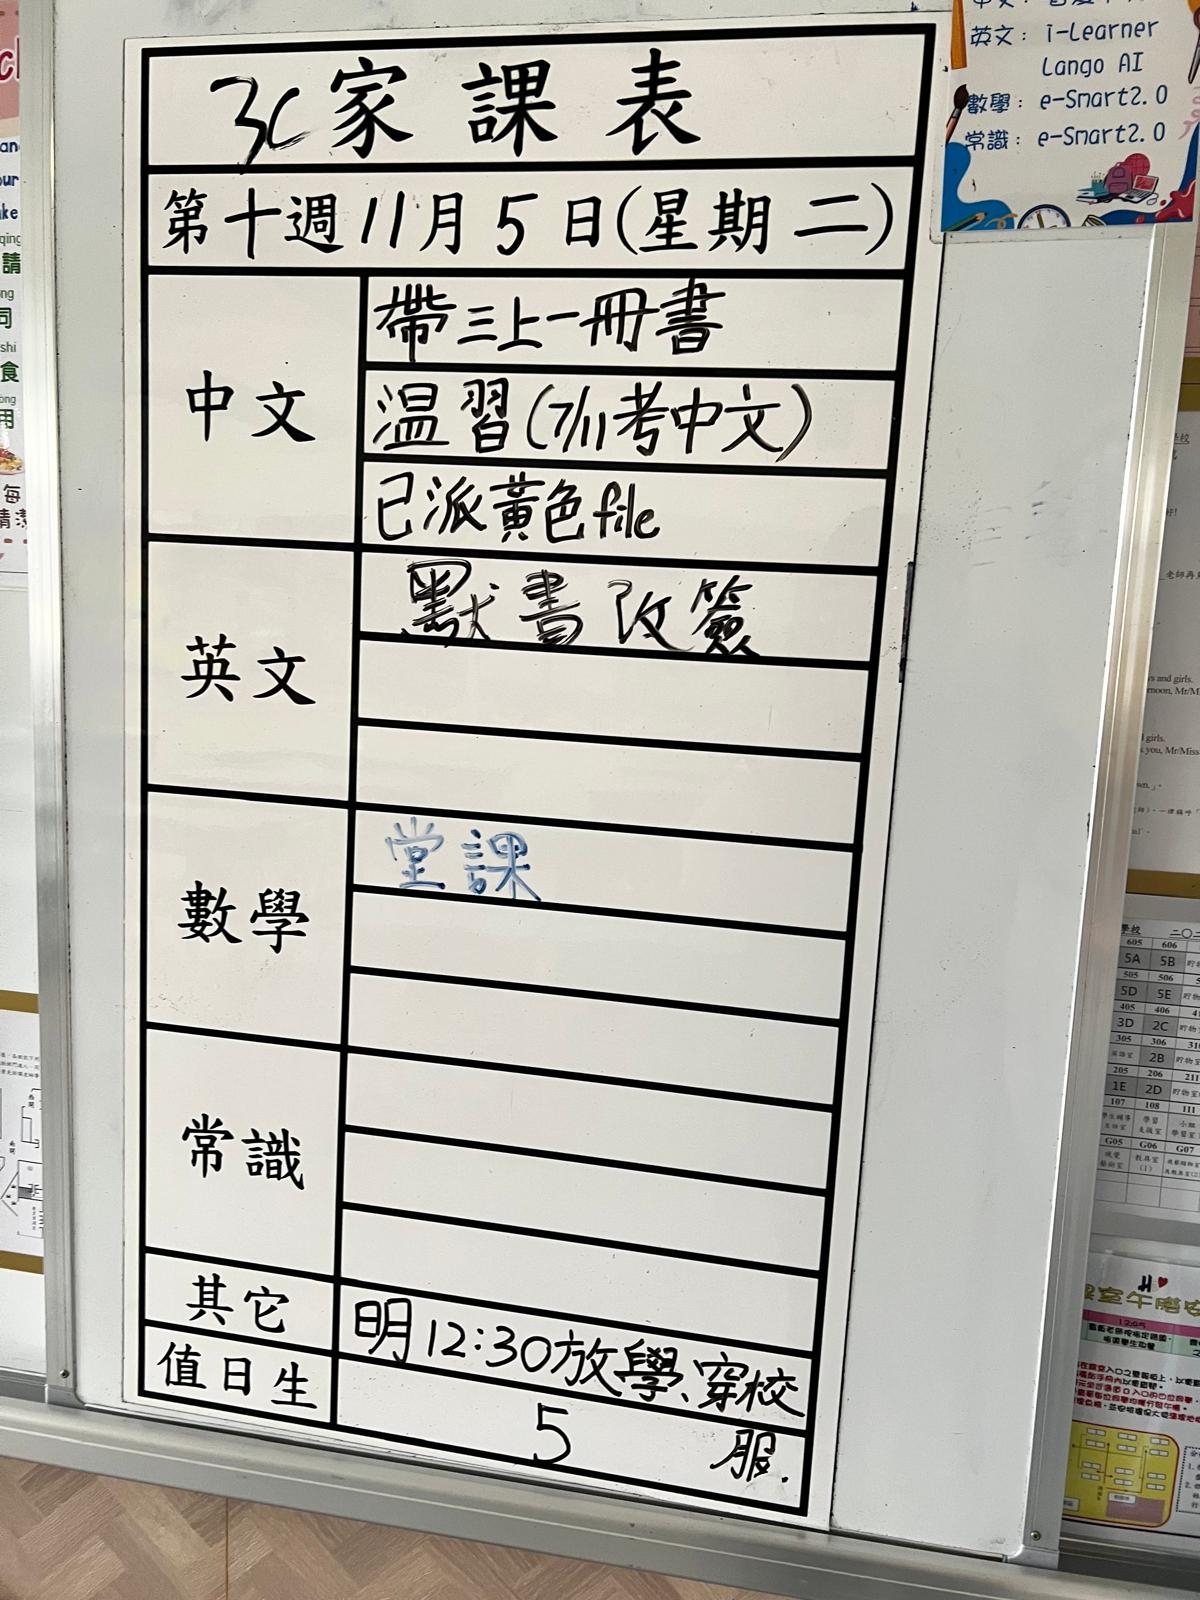 3C家課表
第十週11月5日(星期二)
中文
帶三上一冊書
温習(7/11考中文)
已派黃色file
英文
默書改簽
數學
堂課
常識
其它
明12:30放學、穿校
服.
值日生
5
英文: i-Learner
Lango AI
數學: e-Smart2.0
常識: e-Smart2.0
請
同
食
用
每
605 606
5A 5B
505 506
5D 5E
405 406
3D 2C
305 306
2B
205 206
1E 2D
107 108 111
G05 G06 G07
12:45